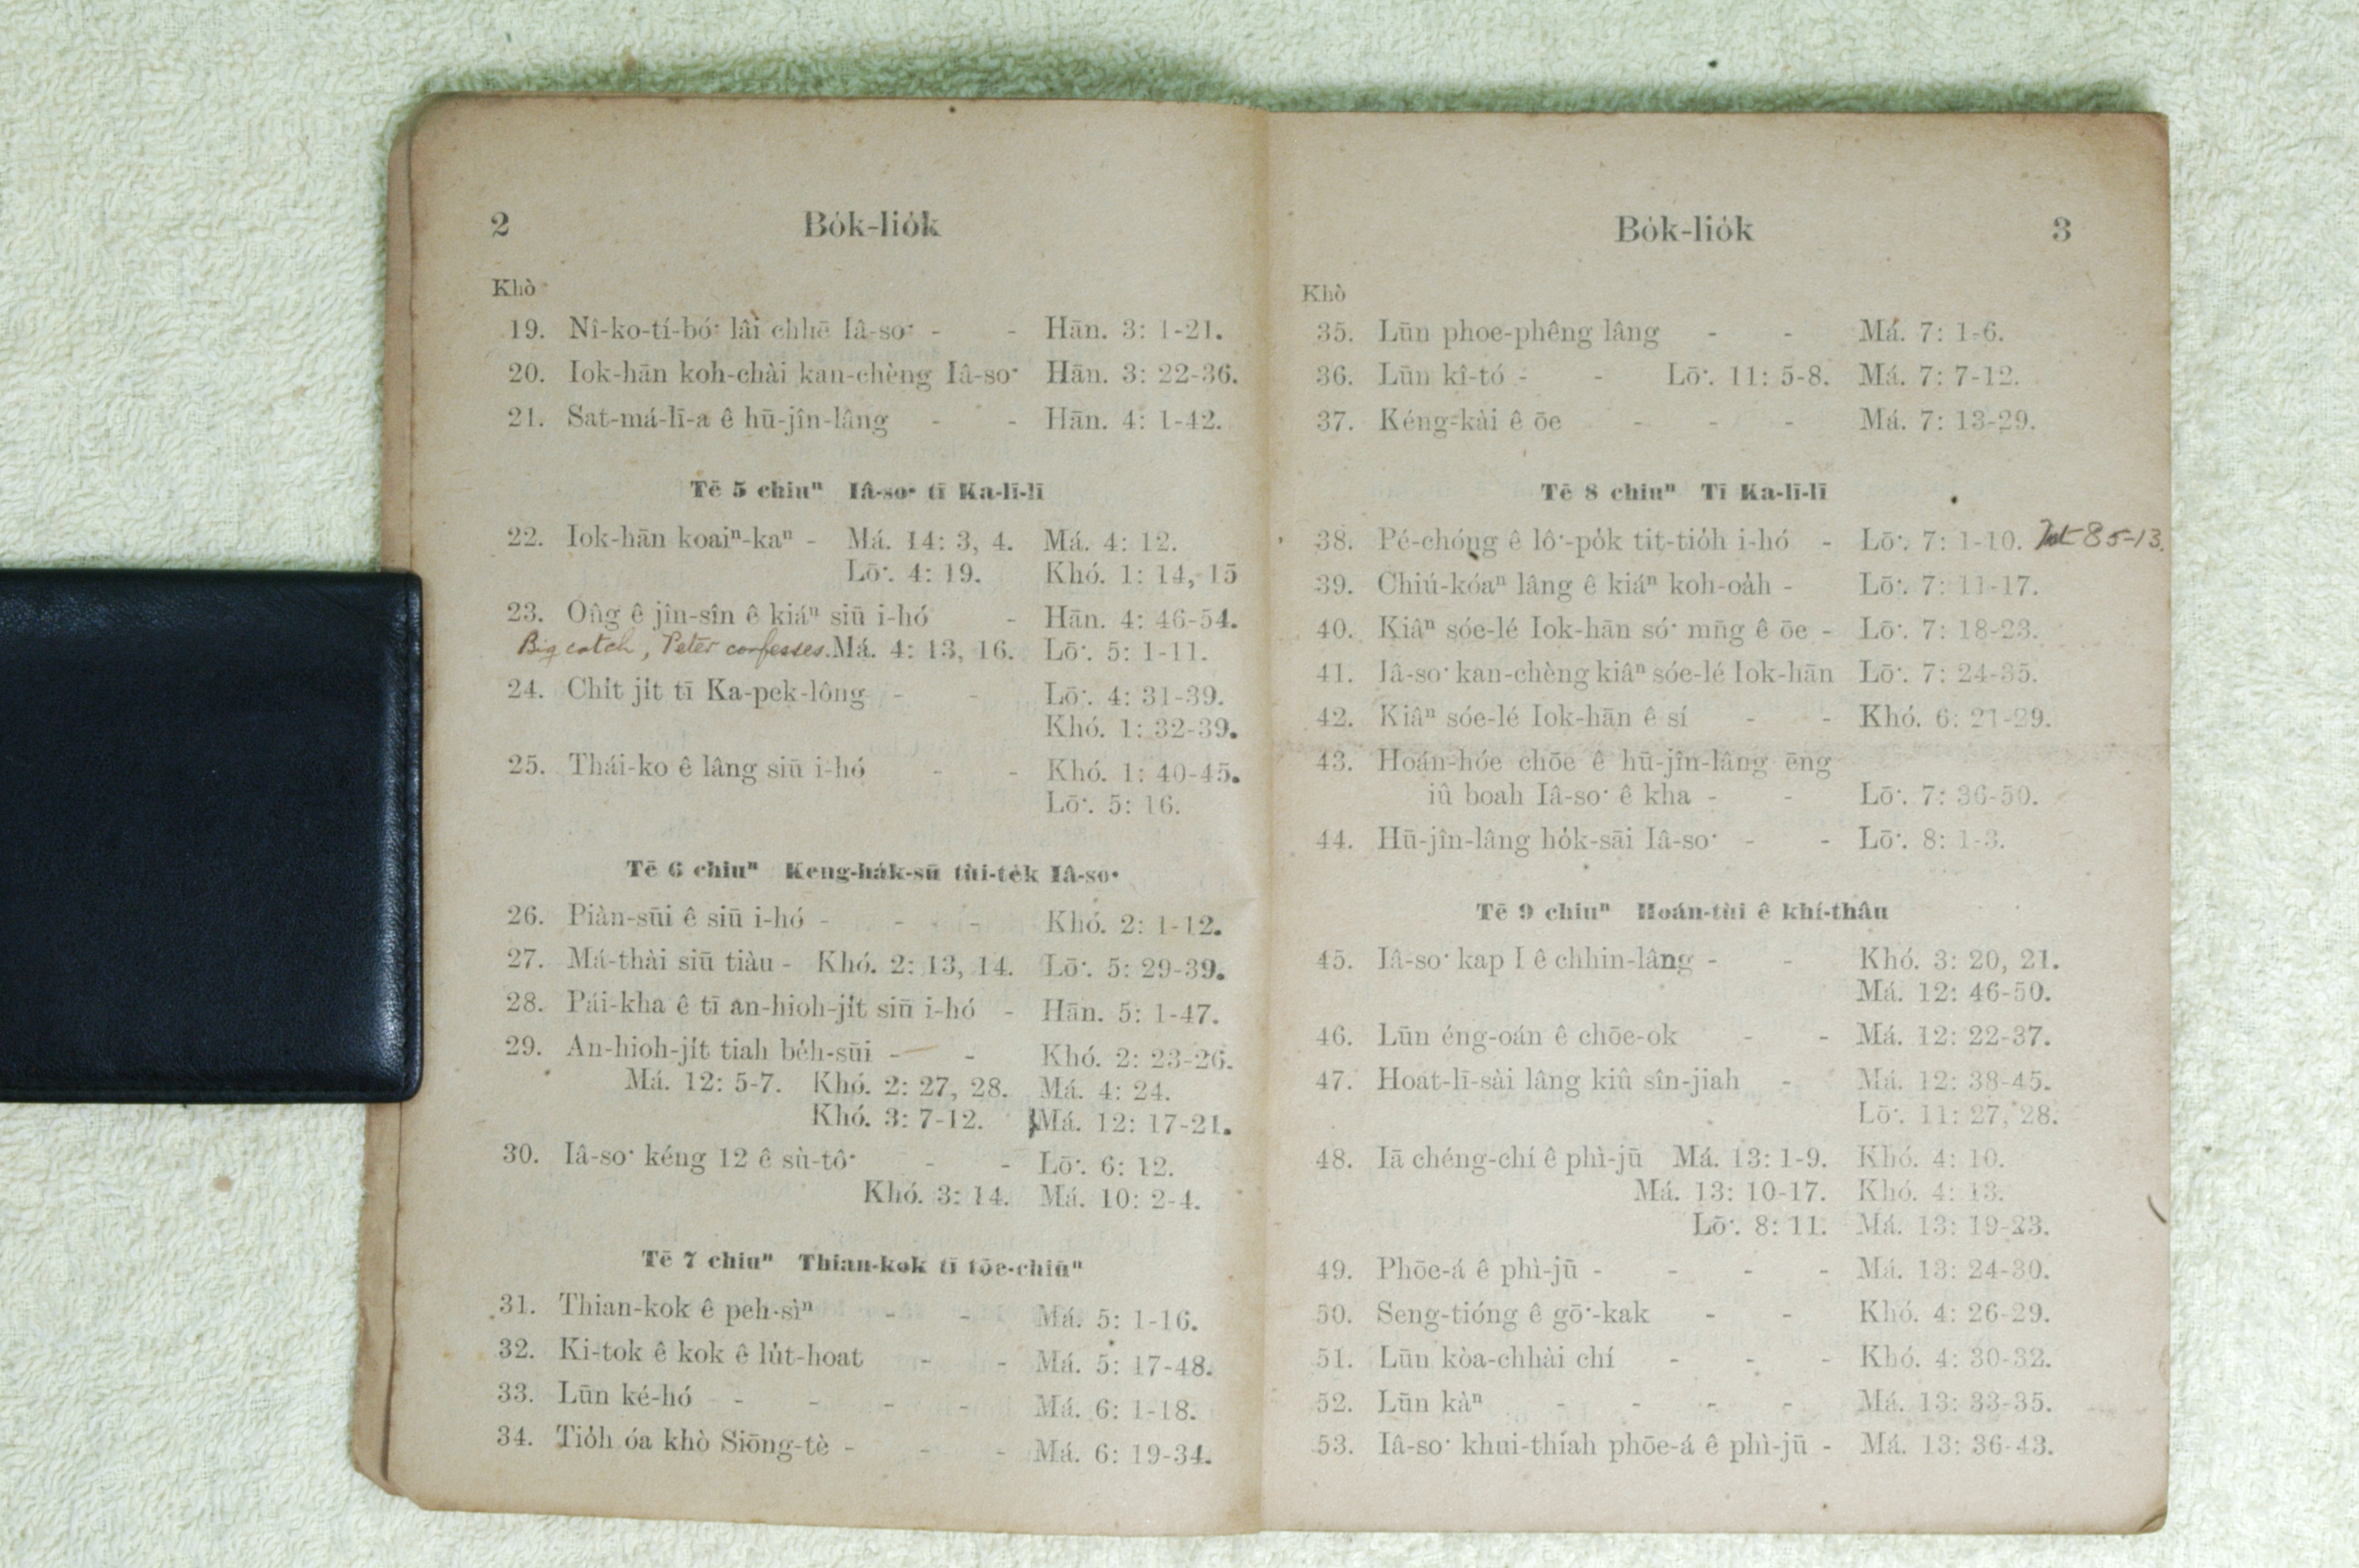 2 Bo̍k-lio̍k
Khò
19. Nî-ko-tí-bó͘ lâi chhē Iâ-so͘ - - Hān. 3: 1-21.
20. Iok-hān koh-chài kan-chèng Iâ-so͘ Hān. 3: 22-36.
21. Sat-má-lī-a ê hū-jîn-lâng - - Hān. 4: 1-42.
Tē 5 chiuⁿ Iâ-so͘ tī Ka-lī-lī
22. Iok-hān koaiⁿ-kaⁿ - Má. 14: 3, 4. Má. 4: 12.
Lō͘. 4: 19. Khó. 1: 14, 15
23. Ông ê jîn-sîn ê kiáⁿ siū i-hó - Hān. 4: 46-54.
Big catch, Peter confesses. Má. 4: 13, 16. Lō͘. 5: 1-11.
24. Chi̍t ji̍t tī Ka-pek-lông - - Lō͘. 4: 31-39.
Khó. 1: 32-39.
25. Thái-ko ê lâng siū i-hó - - Khó. 1: 40-45.
Lō͘. 5: 16.
Tē 6 chiuⁿ Keng-ha̍k-sū tùi-te̍k Iâ-so͘
26. Piàn-sūi ê siū i-hó - - - Khó. 2: 1-12.
27. Má-thài siū tiàu - Khó. 2: 13, 14. Lō͘. 5: 29-39.
28. Pái-kha ê tī an-hioh-ji̍t siū i-hó - Hān. 5: 1-47.
29. An-hioh-ji̍t tiah be̍h-sūi - - Khó. 2: 23-26.
Má. 12: 5-7. Khó. 2: 27, 28. Má. 4: 24.
Khó. 3: 7-12. Má. 12: 17-21.
30. Iâ-so͘ kéng 12 ê sù-tô͘ - - Lō͘. 6: 12.
Khó. 3: 14. Má. 10: 2-4.
Tē 7 chiuⁿ Thian-kok tī tōe-chiūⁿ
31. Thian-kok ê peh-sìⁿ - - Má. 5: 1-16.
32. Ki-tok ê kok ê lu̍t-hoat - - Má. 5: 17-48.
33. Lūn ké-hó - - - - Má. 6: 1-18.
34. Tio̍h óa khò Siōng-tè - - - Má. 6: 19-34.
Bo̍k-lio̍k 3
Khò
35. Lūn phoe-phêng lâng - - Má. 7: 1-6.
36. Lūn kî-tó - - Lō͘. 11: 5-8. Má. 7: 7-12.
37. Kéng-kài ê ōe - - - Má. 7: 13-29.
Tē 8 chiuⁿ Tī Ka-lī-lī
38. Pé-chóng ê lô͘-po̍k tit-tio̍h i-hó - Lō͘. 7: 1-10. 8 5-13.
39. Chiú-kóaⁿ lâng ê kiáⁿ koh-oa̍h - Lō͘. 7: 11-17.
40. Kiâⁿ sóe-lé Iok-hān só͘ mn̄g ê ōe - Lō͘. 7: 18-23.
41. Iâ-so͘ kan-chèng kiâⁿ sóe-lé Iok-hān Lō͘. 7: 24-35.
42. Kiâⁿ sóe-lé Iok-hān ê sí - - Khó. 6: 21-29.
43. Hoán-hóe chōe ê hū-jîn-lâng ēng
iû boah Iâ-so͘ ê kha - - Lō͘. 7: 36-50.
44. Hū-jîn-lâng ho̍k-sāi Iâ-so͘ - - Lō͘. 8: 1-3.
Tē 9 chiuⁿ Hoán-tùi ê khí-thâu
45. Iâ-so͘ kap I ê chhin-lâng - - Khó. 3: 20, 21.
Má. 12: 46-50.
46. Lūn éng-oán ê chōe-ok - - Má. 12: 22-37.
47. Hoat-lī-sài lâng kiû sîn-jiah - Má. 12: 38-45.
Lō͘. 11: 27, 28.
48. Iā chéng-chí ê phì-jū Má. 13: 1-9. Khó. 4: 10.
Má. 13: 10-17. Khó. 4: 13.
Lō͘. 8: 11. Má. 13: 19-23.
49. Phōe-á ê phì-jū - - - - Má. 13: 24-30.
50. Seng-tióng ê gō͘-kak - - Khó. 4: 26-29.
51. Lūn kòa-chhài chí - - - Khó. 4: 30-32.
52. Lūn kàⁿ - - - - Má. 13: 33-35.
53. Iâ-so͘ khui-thiah phōe-á ê phì-jū - Má. 13: 36-43.